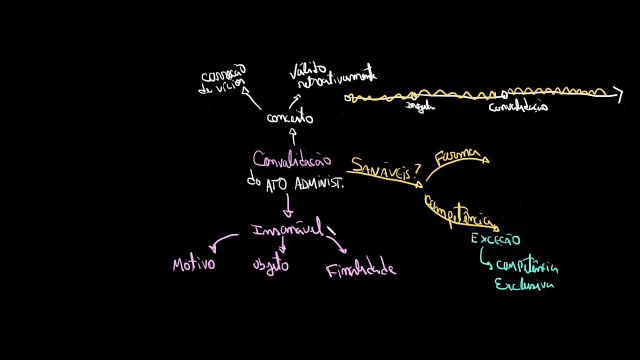 correção
de vícios
Válido
retroativamente
irregular
Convalidação
conceito
Convalidação
do ATO ADMINIST.
SANÁVEIS?
Forma
Competência
EXCEÇÃO
COMPETÊNCIA
Exclusiva
Insanável
Motivo
objeto
Finalidade